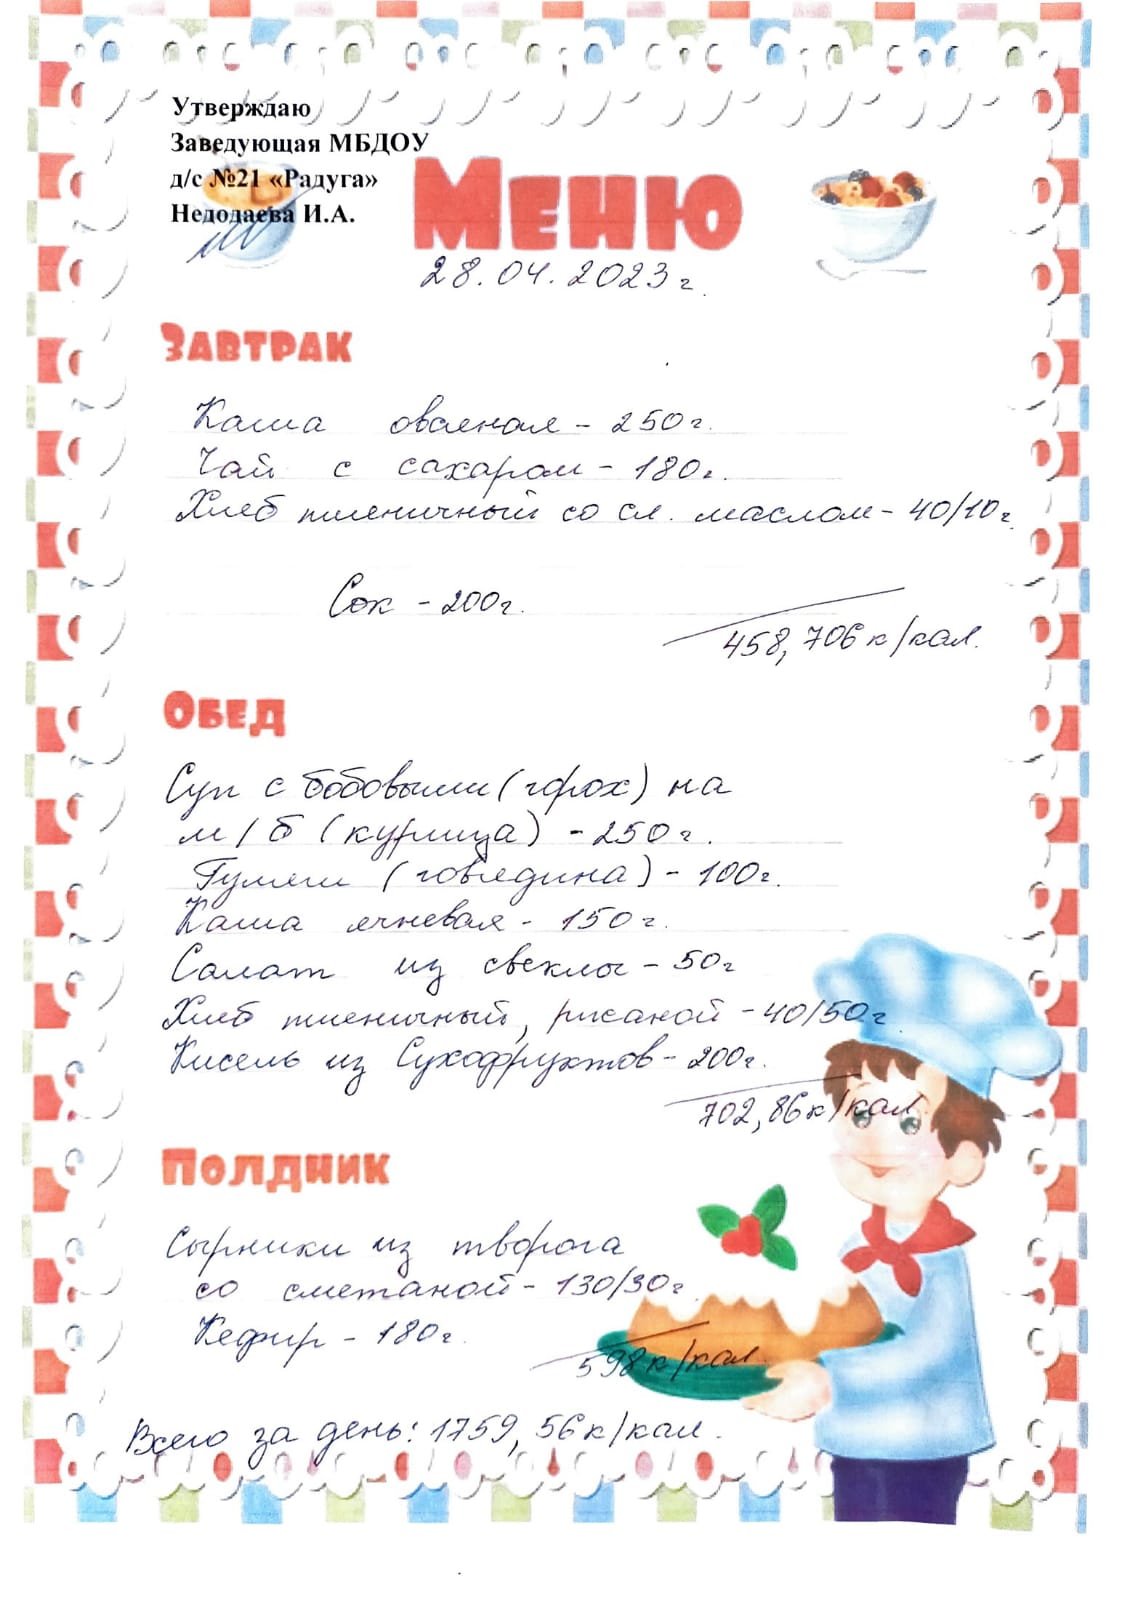 Утверждаю
Заведующая МБДОУ
д/с №21 «Радуга»
Недодаева И.А.
Меню
28.04.2023г.
Завтрак
Каша овсяная - 250г.
Чай с сахаром - 180г.
Хлеб пшеничный со сл. маслом - 40/10г.
Сок - 200г.
458,706 к/кал.
Обед
Суп с бобовыми (горох) на
м/б (курица) - 250г.
Гуляш (говядина) - 100г.
Каша ячневая - 150г.
Салат из свеклы - 50г
Хлеб пшеничный, ржаной - 40/50г.
Кисель из Сухофруктов - 200г.
702,86 к/кал.
Полдник
Сырники из творога
со сметаной - 130/30г.
Кефир - 180г.
598 к/кал.
Всего за день: 1759,56 к/кал.